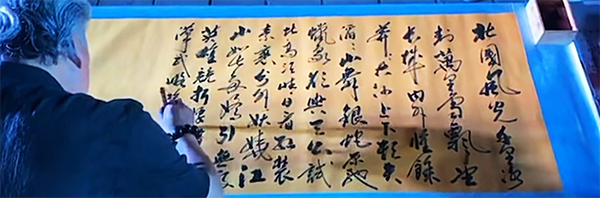 北國風光千里冰
封萬里雪飄望
長城内外惟餘
莽莽大河上下頓失
滔滔山舞銀蛇原馳
蠟象欲與天公試
比高須晴日看紅裝
素裹分外妖嬈江
山如此多嬌引無數
英雄競折腰
漢武略